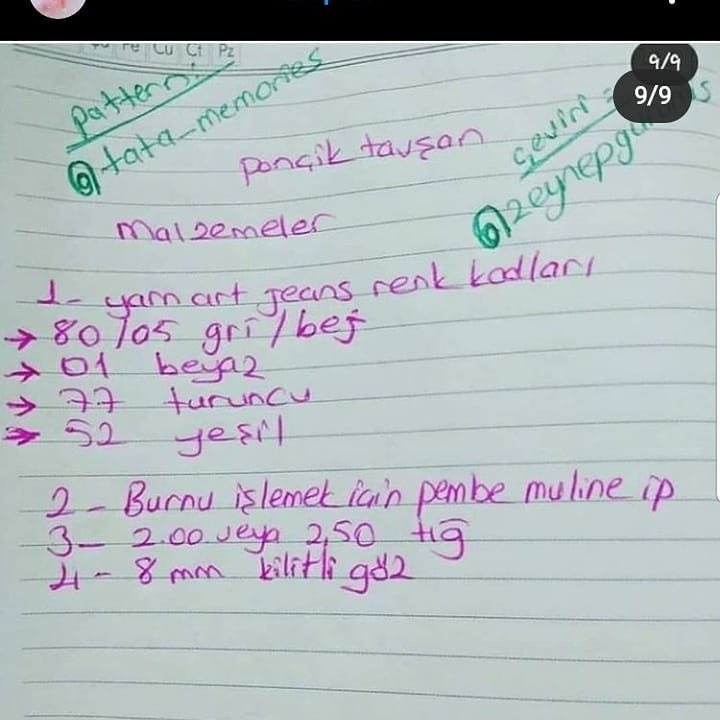 9/9
9/9
Cu
pattern:
@tata_memories
çeviri
ponçik tavşan
Malzemeler
1- yarn art jeans renk kodları
→ 80/05 gri/bej
→ 01 beyaz
→ 77 turuncu
→ 52 yeşil
2- Burnu işlemek için pembe muline ip
3- 2.00 veya 2,50 tığ
4- 8 mm kilitli göz